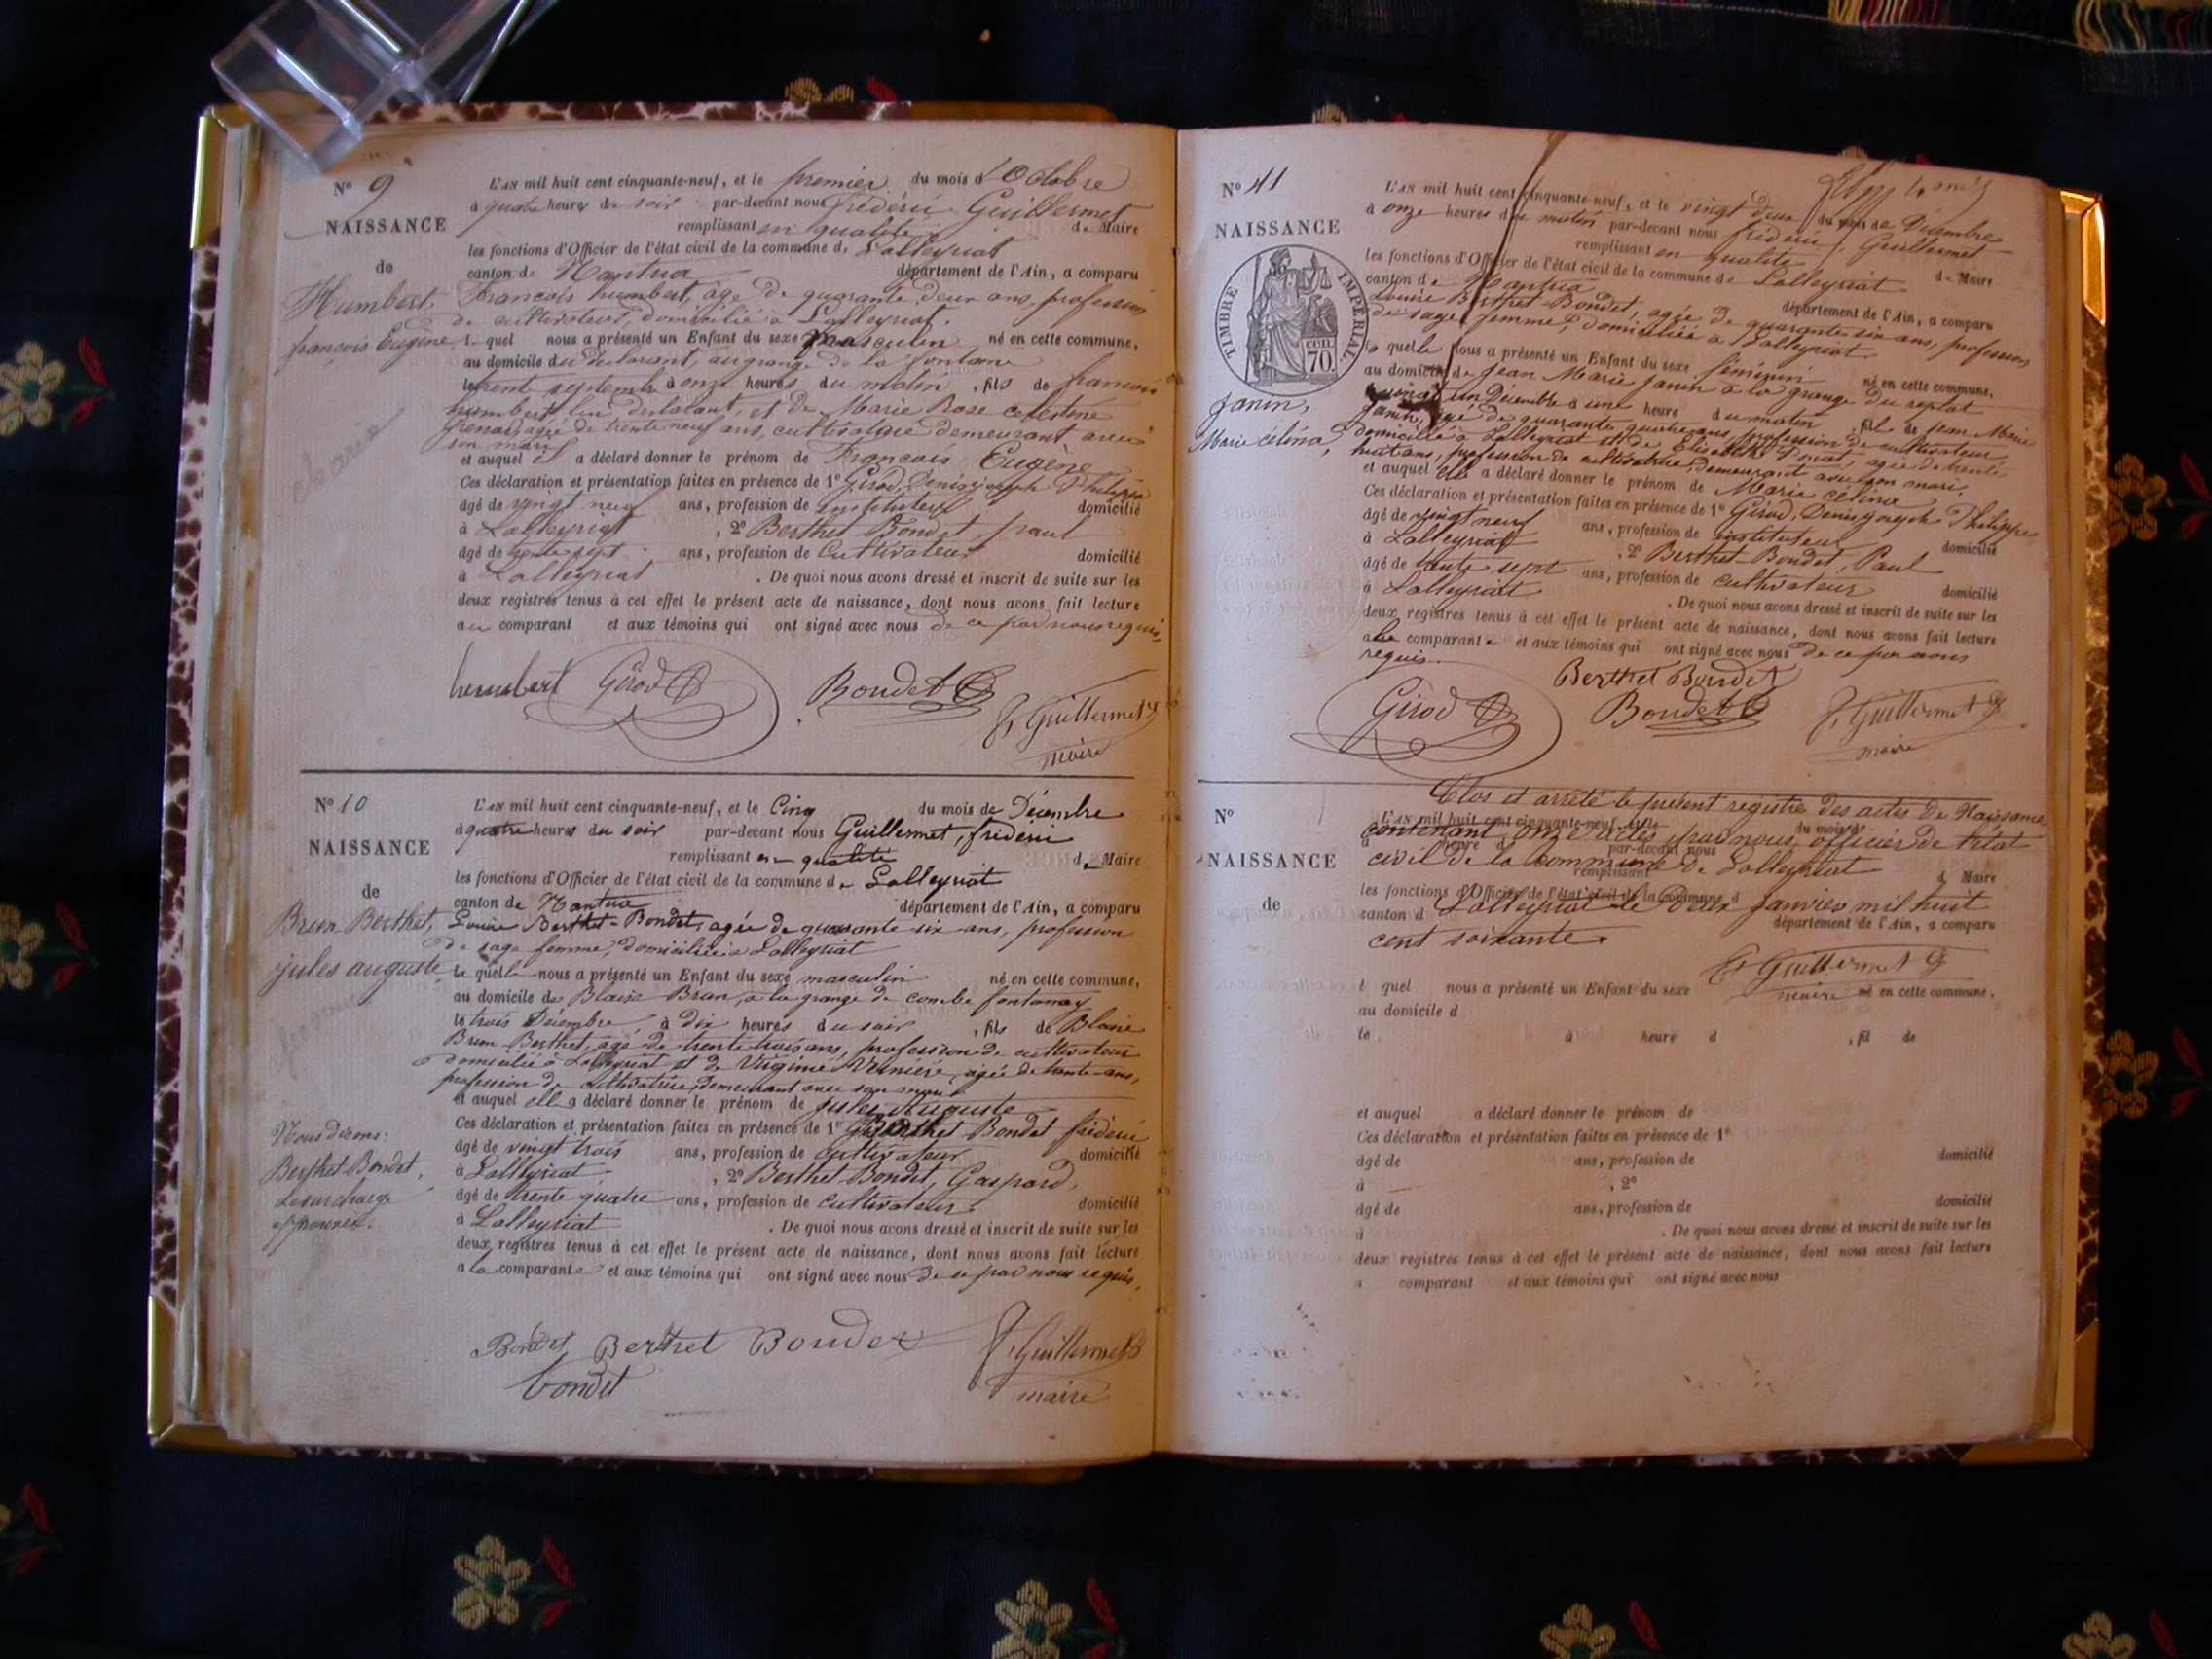 N° 9
L'AN mil huit cent cinquante-neuf, et le premier du mois d'Octobre
à quatre heures du soir par-devant nous frédéric Guillermet
NAISSANCE
remplissant en qualité de Maire
les fonctions d'Officier de l'état civil de la commune de Lalleyriat
de
canton de Nantua département de l'Ain, a comparu
Humbert,
François humbert, âgé de quarante deux ans, profession
de cultivateur, domicilié à Lalleyriat.
françois Eugène
le quel nous a présenté un Enfant du sexe masculin né en cette commune,
au domicile du déclarant, au grange de la fontaine
le trente septembre à onze heures du matin, fils de françois
humbert déclarant, et de Marie Rose célestine
agée de trente neuf ans, cultivatrice demeurant avec
son mari
et auquel il a déclaré donner le prénom de François Eugène
Ces déclaration et présentation faites en présence de 1° Girod, Denis joseph Philippe
âgé de vingt neuf ans, profession de instituteur domicilié
à Lalleyriat, 2° Berthet Bondet, paul
âgé de trente sept ans, profession de Cultivateur domicilié
à Lalleyriat. De quoi nous avons dressé et inscrit de suite sur les
deux registres tenus à cet effet le présent acte de naissance, dont nous avons fait lecture
au comparant et aux témoins qui ont signé avec nous de ce par nous requis,
humbert Girod Bondet
F. Guillermet
maire
N° 10
L'AN mil huit cent cinquante-neuf, et le Cinq du mois de Décembre
à quatre heures du soir par-devant nous Guillermet, fréderic
NAISSANCE
remplissant en qualité de Maire
les fonctions d'Officier de l'état civil de la commune de Lalleyriat
de
canton de Nantua département de l'Ain, a comparu
Brun Berthet,
Louise Berthet-Bondet, agée de quarante six ans, profession
de sage femme, domiciliée à Lalleyriat
jules auguste
la quelle nous a présenté un Enfant du sexe masculin né en cette commune,
au domicile de Blaise Brun, à la grange de combe fontanay
le trois Décembre à dix heures du soir, fils de Blaise
Brun-Berthet, agé de trente trois ans, profession de cultivateur
domicilié à Lalleyriat et de Virginie agée de trente ans,
profession de cultivatrice, demeurant avec son mari
et auquel elle a déclaré donner le prénom de jules Auguste
Ces déclaration et présentation faites en présence de 1° Berthet Bondet fréderic
Nous disons:
Berthet Bondet,
La surcharge
approuvée.
âgé de vingt trois ans, profession de cultivateur domicilié
à Lalleyriat, 2° Berthet Bondet, Gaspard,
âgé de trente quatre ans, profession de cultivateur domicilié
à Lalleyriat. De quoi nous avons dressé et inscrit de suite sur les
deux registres tenus à cet effet le présent acte de naissance, dont nous avons fait lecture
a la comparante et aux témoins qui ont signé avec nous de ce par nous requis,
Bondet Berthet Bondet
F. Guillermet
bondet
maire
N° 11
L'AN mil huit cent cinquante-neuf, et le vingt deux du mois de Décembre
à onze heures du matin par-devant nous frédéric Guillermet
NAISSANCE
remplissant en qualité de Maire
les fonctions d'Officier de l'état civil de la commune de Lalleyriat
TIMBRE IMPERIAL
70.
canton de Nantua département de l'Ain, a comparu
Louise Berthet-Bondet, agée de quarante six ans, profession
de sage femme, domiciliée à Lalleyriat
la quelle nous a présenté un Enfant du sexe féminin né en cette commune,
au domicile de Jean Marie Janin à la grange du replat
Janin,
Marie célina,
le vingt un Décembre à une heure du matin, fille de Jean Marie
Janin, agé de quarante quatre ans, profession de cultivateur
domicilié à Lalleyriat et de Elisabeth agée de trente
huit ans, profession de cultivatrice, demeurant avec son mari.
et auquel elle a déclaré donner le prénom de Marie célina
Ces déclaration et présentation faites en présence de 1° Girod, Denis joseph Philippe
âgé de vingt neuf ans, profession de instituteur domicilié
à Lalleyriat, 2° Berthet-Bondet, Paul
âgé de trente sept ans, profession de cultivateur domicilié
à Lalleyriat. De quoi nous avons dressé et inscrit de suite sur les
deux registres tenus à cet effet le présent acte de naissance, dont nous avons fait lecture
a la comparante et aux témoins qui ont signé avec nous de ce par nous
requis.
Berthet Bondet
Girod Bondet F. Guillermet
maire
Clos et arrêté le présent registre des actes de Naissance
N°
L'AN mil huit cent cinquante-neuf, et le du mois d
contenant onze actes par nous officier de l'état
à heure d par-devant nous
NAISSANCE
civil de la Commune de Lalleyriat
remplissant d Maire
les fonctions d'Officier de l'état civil de la commune d
de
Lalleyriat le Deux Janvier mil huit
canton d département de l'Ain, a comparu
cent soixante.
F. Guillermet
maire
l quel nous a présenté un Enfant du sexe né en cette commune,
au domicile d
le à heure d , fil de
et auquel a déclaré donner le prénom de
Ces déclaration et présentation faites en présence de 1°
âgé de ans, profession de domicilié
à , 2°
âgé de ans, profession de domicilié
à . De quoi nous avons dressé et inscrit de suite sur les
deux registres tenus à cet effet le présent acte de naissance, dont nous avons fait lecture
a comparant et aux témoins qui ont signé avec nous